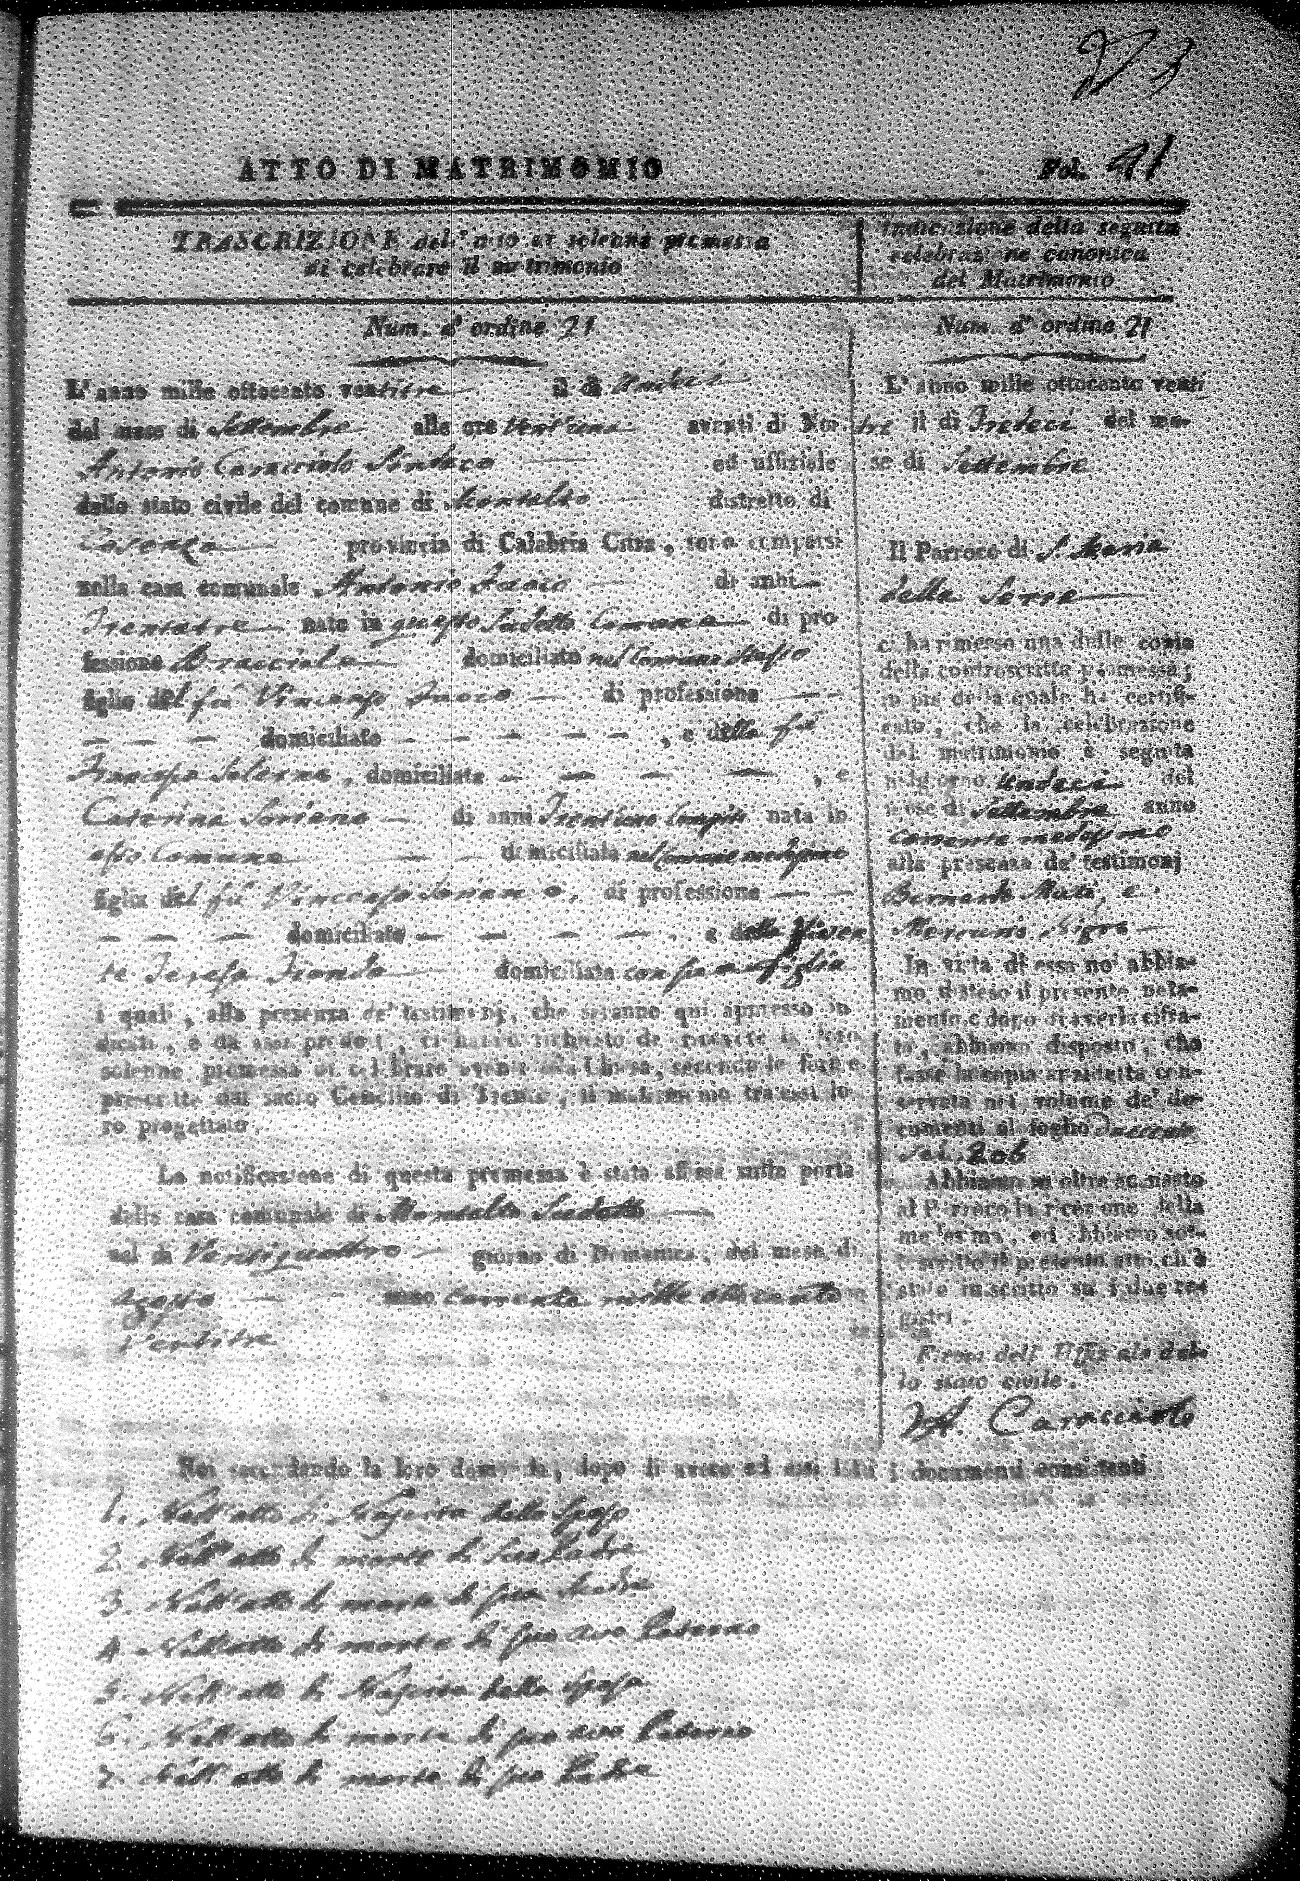 ATTO DI MATRIMONIO
Fol. 41
TRASCRIZIONE dell' atto di solenne promessa
di celebrare il matrimonio
Num. d' ordine 21
L' anno mille ottocento ventitre il dì Undeci
del mese di Settembre alle ore avanti di Noi
Antonio Caracciolo Sindaco ed uffiziale
dello stato civile del comune di Montalto distretto di
Cosenza provincia di Calabria Citra, sono comparsi
nella casa comunale Antonio di anni
Trentatre nato in questo sudetto Comune di pro
fessione Bracciale domiciliato nel Comune stesso
figlio del fu Vincenzo di professione
domiciliato , e della fu
Francesca Salerno, domiciliata , e
Caterina Soriano di anni Trentuno compiti nata in
esso Comune domiciliata nel comune medesimo
figlia del fu Vincenzo Soriano, di professione
domiciliato e della Viven
te Teresa domiciliata con sua figlia
i quali, alla presenza de' testimonj, che saranno qui appresso in
dicati, e da essi prodotti, ci hanno richiesto di ricevere la loro
solenne promessa di celebrare avanti alla Chiesa, secondo le forme
prescritte dal sacro Concilio di Trento, il matrimonio tra essi lo
ro progettato.
La notificazione di questa promessa è stata affissa sulla porta
della casa comunale di Montalto sudetto
nel dì Ventiquattro giorno di Domenica, del mese di
Agosto anno corrente mille ottocento
ventitre
Indicazione della seguita
celebrazione canonica
del Matrimonio
Num. d' ordine 21
L' anno mille ottocento venti
tre il dì Tredeci del me-
se di Settembre
Il Parroco di S. Maria
della Serra
ci ha rimesso una delle copie
della controscritta promessa;
in piè della quale ha certifi-
cato, che la celebrazione
del matrimonio è seguita
nel giorno Undeci del
mese di Settembre anno
corrente medesimo
alla presenza de' testimonj
Bernardo e
Nigro
In vista di essa noi abbia-
mo disteso il presente nota-
mento, e dopo di averla cifra-
ta, abbiamo disposto, che
fosse la copia anzidetta con-
servata nel volume de' do-
cumenti al foglio Duecento
sei. 206
Abbiamo in oltre accusato
al Parroco la ricezione della
medesima, ed abbiamo sot-
toscritto il presente atto, ch' è
stato inscritto su i due re-
gistri.
Firma dell' Uffiziale del-
lo stato civile.
A. Caracciolo
Noi secondando la loro domanda, dopo di avere ad essi letti i documenti consistenti
1. Nell' atto di Nascita dello sposo
2. Nell' atto di morte di suo Padre
3. Nell' atto di morte di sua Madre
4. Nell' atto di morte di suo avo Paterno
5. Nell' atto di Nascita della sposa
6. Nell' atto di morte di suo avo Paterno
7. Nell' atto di morte di suo Padre